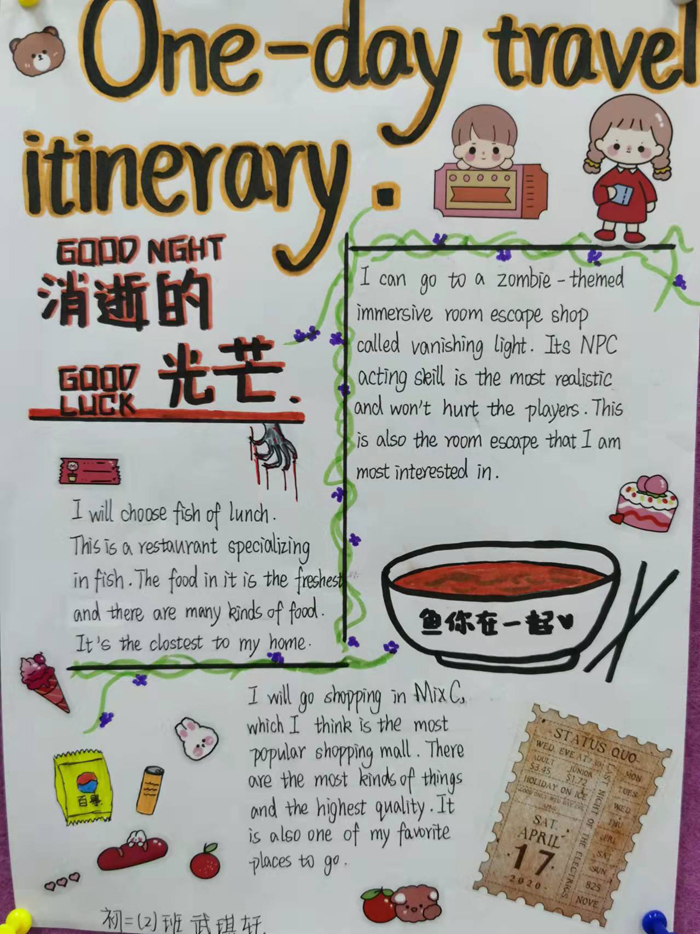 One-day travel
itinerary.
GOOD NGHT
消逝的
GOOD
LUCK
光芒.
I can go to a zombie-themed
immersive room escape shop
called vanishing light. Its NPC
acting skill is the most realistic
and won't hurt the players. This
is also the room escape that I am
most interested in.
I will choose fish of lunch.
This is a restaurant specializing
in fish. The food in it is the freshest
and there are many kinds of food.
It's the clostest to my home.
鱼你在一起
I will go shopping in MixC,
which I think is the most
popular shopping mall. There
are the most kinds of things
and the highest quality. It
is also one of my favorite
places to go.
STATUS QUO
WED. EVE AT 7
ADULT JUNIOR
$3.45 $1.72
HOLIDAY ON ICE
SAT.
APRIL
17
2020
LAST NIGHT OF THE ELECTRICS
MON
TUES
WED
THU
SAT
SUN
825
NOVE
初二(2)班 武琪轩